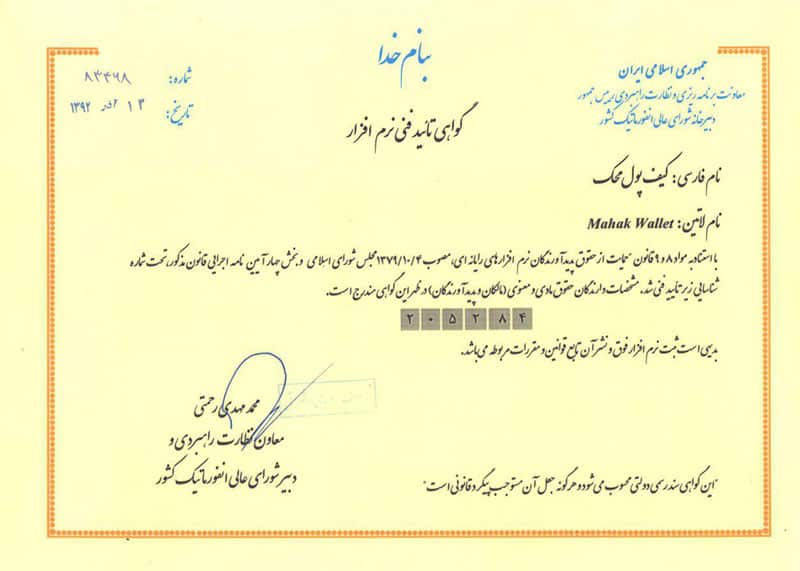 بنام خدا
جمهوری اسلامی ایران
معاونت برنامه ریزی و نظارت راهبردی رییس جمهور
دبیرخانه شورای عالی انفورماتیک کشور
شماره: ۸۳۴۶۸
تاریخ: ۱۳ آذر ۱۳۹۲
گواهی تائید فنی نرم افزار
نام فارسی: کیف پول محک
نام لاتین: Mahak Wallet
با استناد به مواد ۸ و ۹ قانون حمایت از حقوق پدیدآورندگان نرم افزارهای رایانه ای، مصوب ۱۳۷۹/۱۰/۴ مجلس شورای اسلامی و بخش چهار آیین نامه اجرایی قانون مذکور، تحت شماره
شناسایی زیر تایید فنی شد. مشخصات دارندگان حقوق مادی و معنوی (مالکان و پدیدآورندگان) در ظهر این گواهی مندرج است.
۲۰۵۲۸۴
بدیهی است ثبت نرم افزار فوق و نشر آن تابع قوانین و مقررات مربوطه می باشد.
محمد مهدی رحمتی
معاون نظارت راهبردی و
دبیر شورای عالی انفورماتیک کشور
"این گواهی سند رسمی دولتی محسوب می شود و هرگونه جعل آن مستوجب پیگرد قانونی است"